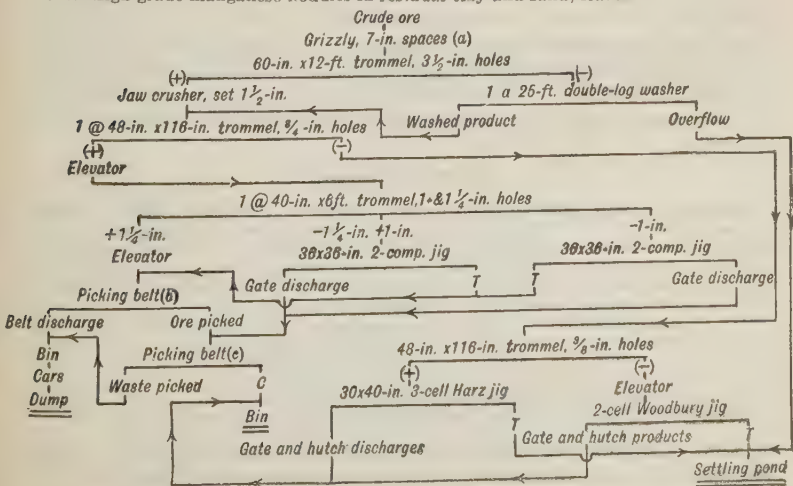 Crude ore
Grizzly, 7-in. spaces (a)
60-in. x12-ft. trommel, 3½-in. holes
(+)
(-)
Jaw crusher, set 1½-in.
1 a 25-ft. double-log washer
1 @ 48-in. x116-in. trommel, ¾-in. holes
Washed product
Overflow
(+)
(-)
Elevator
1 @ 40-in. x6ft. trommel,1-&1¼-in. holes
+1¼-in.
-1¼-in. +1-in.
-1-in.
Elevator
36x36-in. 2-comp. jig
36x36-in. 2-comp. jig
Gate discharge
T
T
Gate discharge
Picking belt(b)
Belt discharge
Ore picked
Bin
Cars
Dump
Picking belt(c)
Waste picked
C
Bin
48-in. x116-in. trommel, ⅜-in. holes
(+)
(-)
30x40-in. 3-cell Harz jig
Elevator
2-cell Woodbury jig
Gate and hutch discharges
T
Gate and hutch products
T
Settling pond